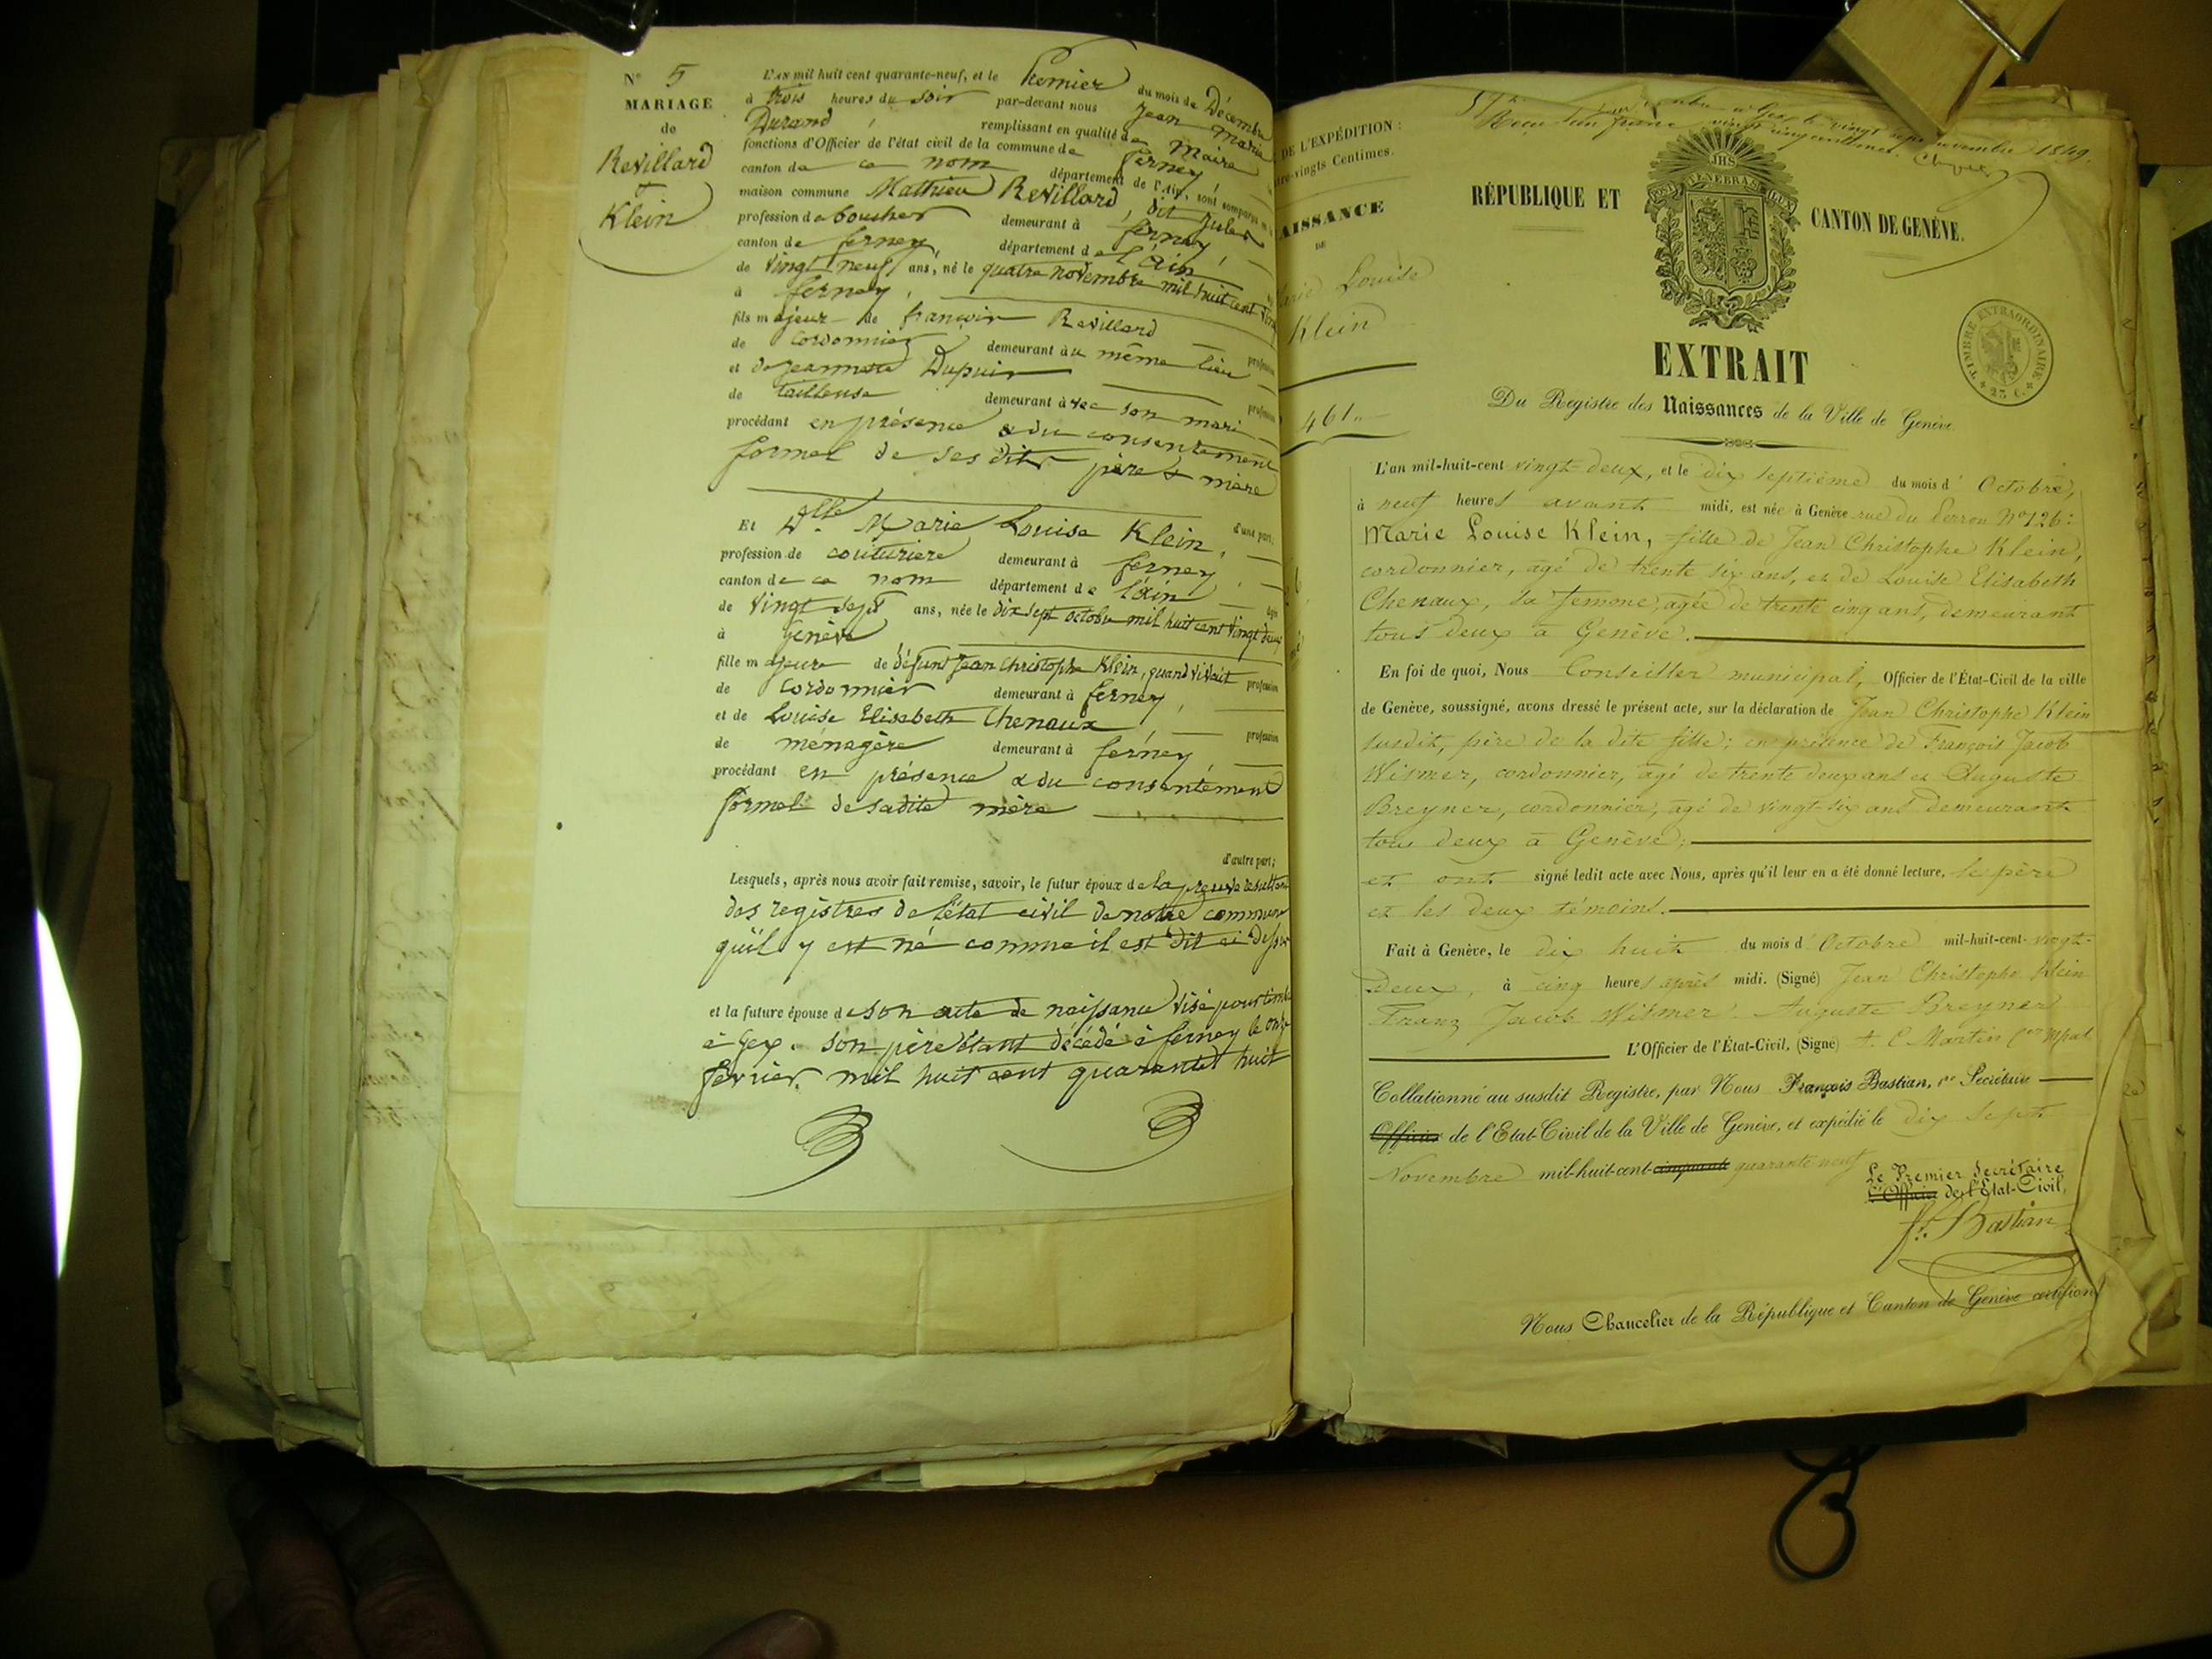 N° 5
MARIAGE
de
Revillard
&
Klein
L'AN mil huit cent quarante-neuf, et le Premier du mois de Décembre
à trois heures du soir par-devant nous Jean Marie
Durand, remplissant en qualité de Maire
fonctions d'Officier de l'état civil de la commune de ferney,
canton de ce nom département de l'Ain, sont comparus
maison commune Mathieu Revillard, dit Jules
profession de boucher demeurant à ferney
canton de ferney, département de l'ain,
de vingt neuf ans, né le quatre novembre mil huit cent vingt
à ferney,
fils majeur de françois Revillard profession
de cordonnier demeurant au même lieu
et de jeannette Dupuis profession
de tailleuse demeurant avec son mari
procédant en présence & du consentement
formel de ses dits père & mère
d'une part;
Et Dlle Marie Louise Klein,
profession de couturiere demeurant à ferney,
canton de ce nom département de l'ain âgée
de vingt sept ans, née le dix sept octobre mil huit cent vingt deux
à Genève
fille majeure de défunt Jean Christophe Klein, quand vivait profession
de cordonnier demeurant à ferney,
et de Louise Elisabeth Chenaux profession
de ménagère demeurant à ferney,
procédant en présence & du consentement
formel de sadite mère
d'autre part;
Lesquels, après nous avoir fait remise, savoir, le futur époux de la preuve résultant
des registres de l'état civil de notre commune
qu'il y est né comme il est dit ci dessus
et la future épouse de son acte de naissance visé pour timbre
à Gex. son père étant décédé à ferney le onze
février mil huit cent quarante huit
DE L'EXPÉDITION:
vingts Centimes.
AISSANCE
DE
Marie Louise
Klein
461
novembre 1849.
RÉPUBLIQUE ET CANTON DE GENÈVE.
JHS
POST TENEBRAS LUX
TIMBRE EXTRAORDINAIRE
25 C.
EXTRAIT
Du Registre des Naissances de la Ville de Genève
L'an mil-huit-cent vingt-deux, et le dix septième du mois d'Octobre,
à neuf heures avant midi, est née à Genève rue du Perron N° 126:
Marie Louise Klein, fille de Jean Christophe Klein,
cordonnier, agé de trente six ans, et de Louise Elisabeth
Chenaux, sa femme, agée de trente cinq ans, demeurant
tous deux à Genève.
En foi de quoi, Nous Conseiller municipal, Officier de l'État-Civil de la ville
de Genève, soussigné, avons dressé le présent acte, sur la déclaration de Jean Christophe Klein
susdit, père de la dite fille; en présence de François Jacob
Wismer, cordonnier, agé de trente deux ans et Auguste
Breyner, cordonnier, agé de vingt six ans demeurant
tous deux à Genève;
et ont signé ledit acte avec Nous, après qu'il leur en a été donné lecture, le père
et les deux témoins.
Fait à Genève, le dix huit du mois d'Octobre mil-huit-cent-vingt-
Deux, à cinq heures après midi. (Signé) Jean Christophe Klein
Franz Jacob Wismer Auguste Breyner
L'Officier de l'État-Civil, (Signé) Martin
Collationné au susdit Registre, par Nous François Bastian, 1er Secrétaire
Officier de l'Etat-Civil de la Ville de Genève, et expédié le dix sept
Novembre mil-huit-cent-cinquante quarante neuf
Le Premier Secrétaire
L'Officier de l'Etat-Civil,
fs. Bastian
Nous Chancelier de la République et Canton de Genève certifions